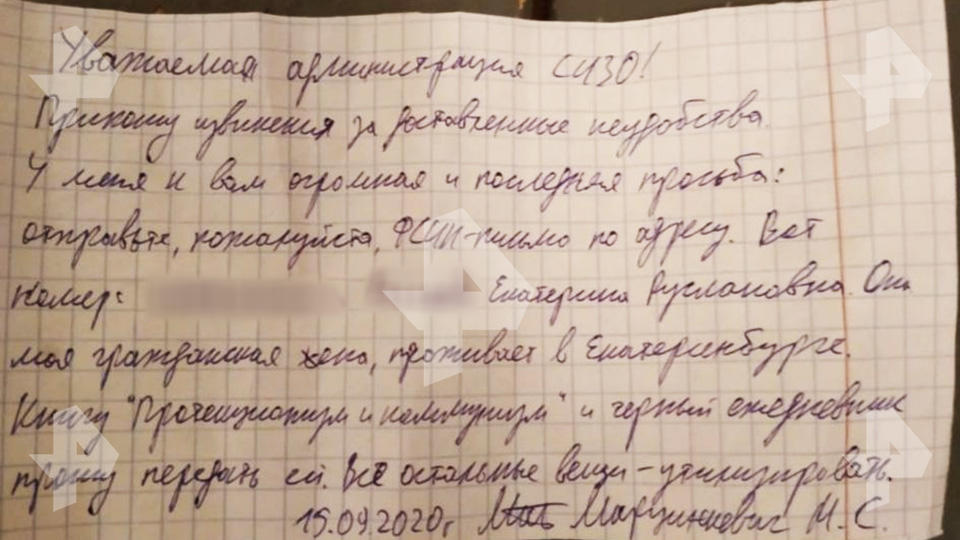 Уважаемая администрация СИЗО!
Приношу извинения за доставленные неудобства.
У меня к вам огромная и последняя просьба:
отправьте, пожалуйста, ФСИН-письмо по адресу. Вот
номер: Екатерина Руслановна. Она
моя гражданская жена, проживает в Екатеринбурге.
Книгу "Протекционизм и коммунизм" и черный ежедневник
прошу передать ей. Все остальные вещи - утилизировать.
15.09.2020г Марцинкевич М. С.